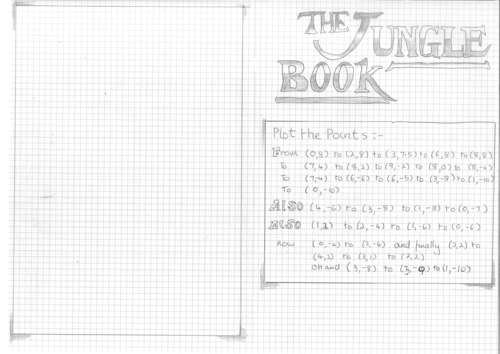 THE JUNGLE
BOOK
Plot the Points :-
From (0,8) to (2,8) to (3,7.5) to (6,8) to (8,8)
To (7,4) to (8,2) to (9,-2) to (8,0) to (8,-4)
To (7,-4) to (6,-6) to (6,-5) to (3,-8) to (1,-10)
To (0,-10)
ALSO (4,-6) to (3,-8) to (1,-8) to (0,-7)
ALSO (1,2) to (2,-4) to (1,-6) to (0,-6)
Now (0,-4) to (2,-4) and finally (2,2) to
(4,2) to (3,1) to (2,2)
Oh and (3,-8) to (3,-9) to (1,-10)